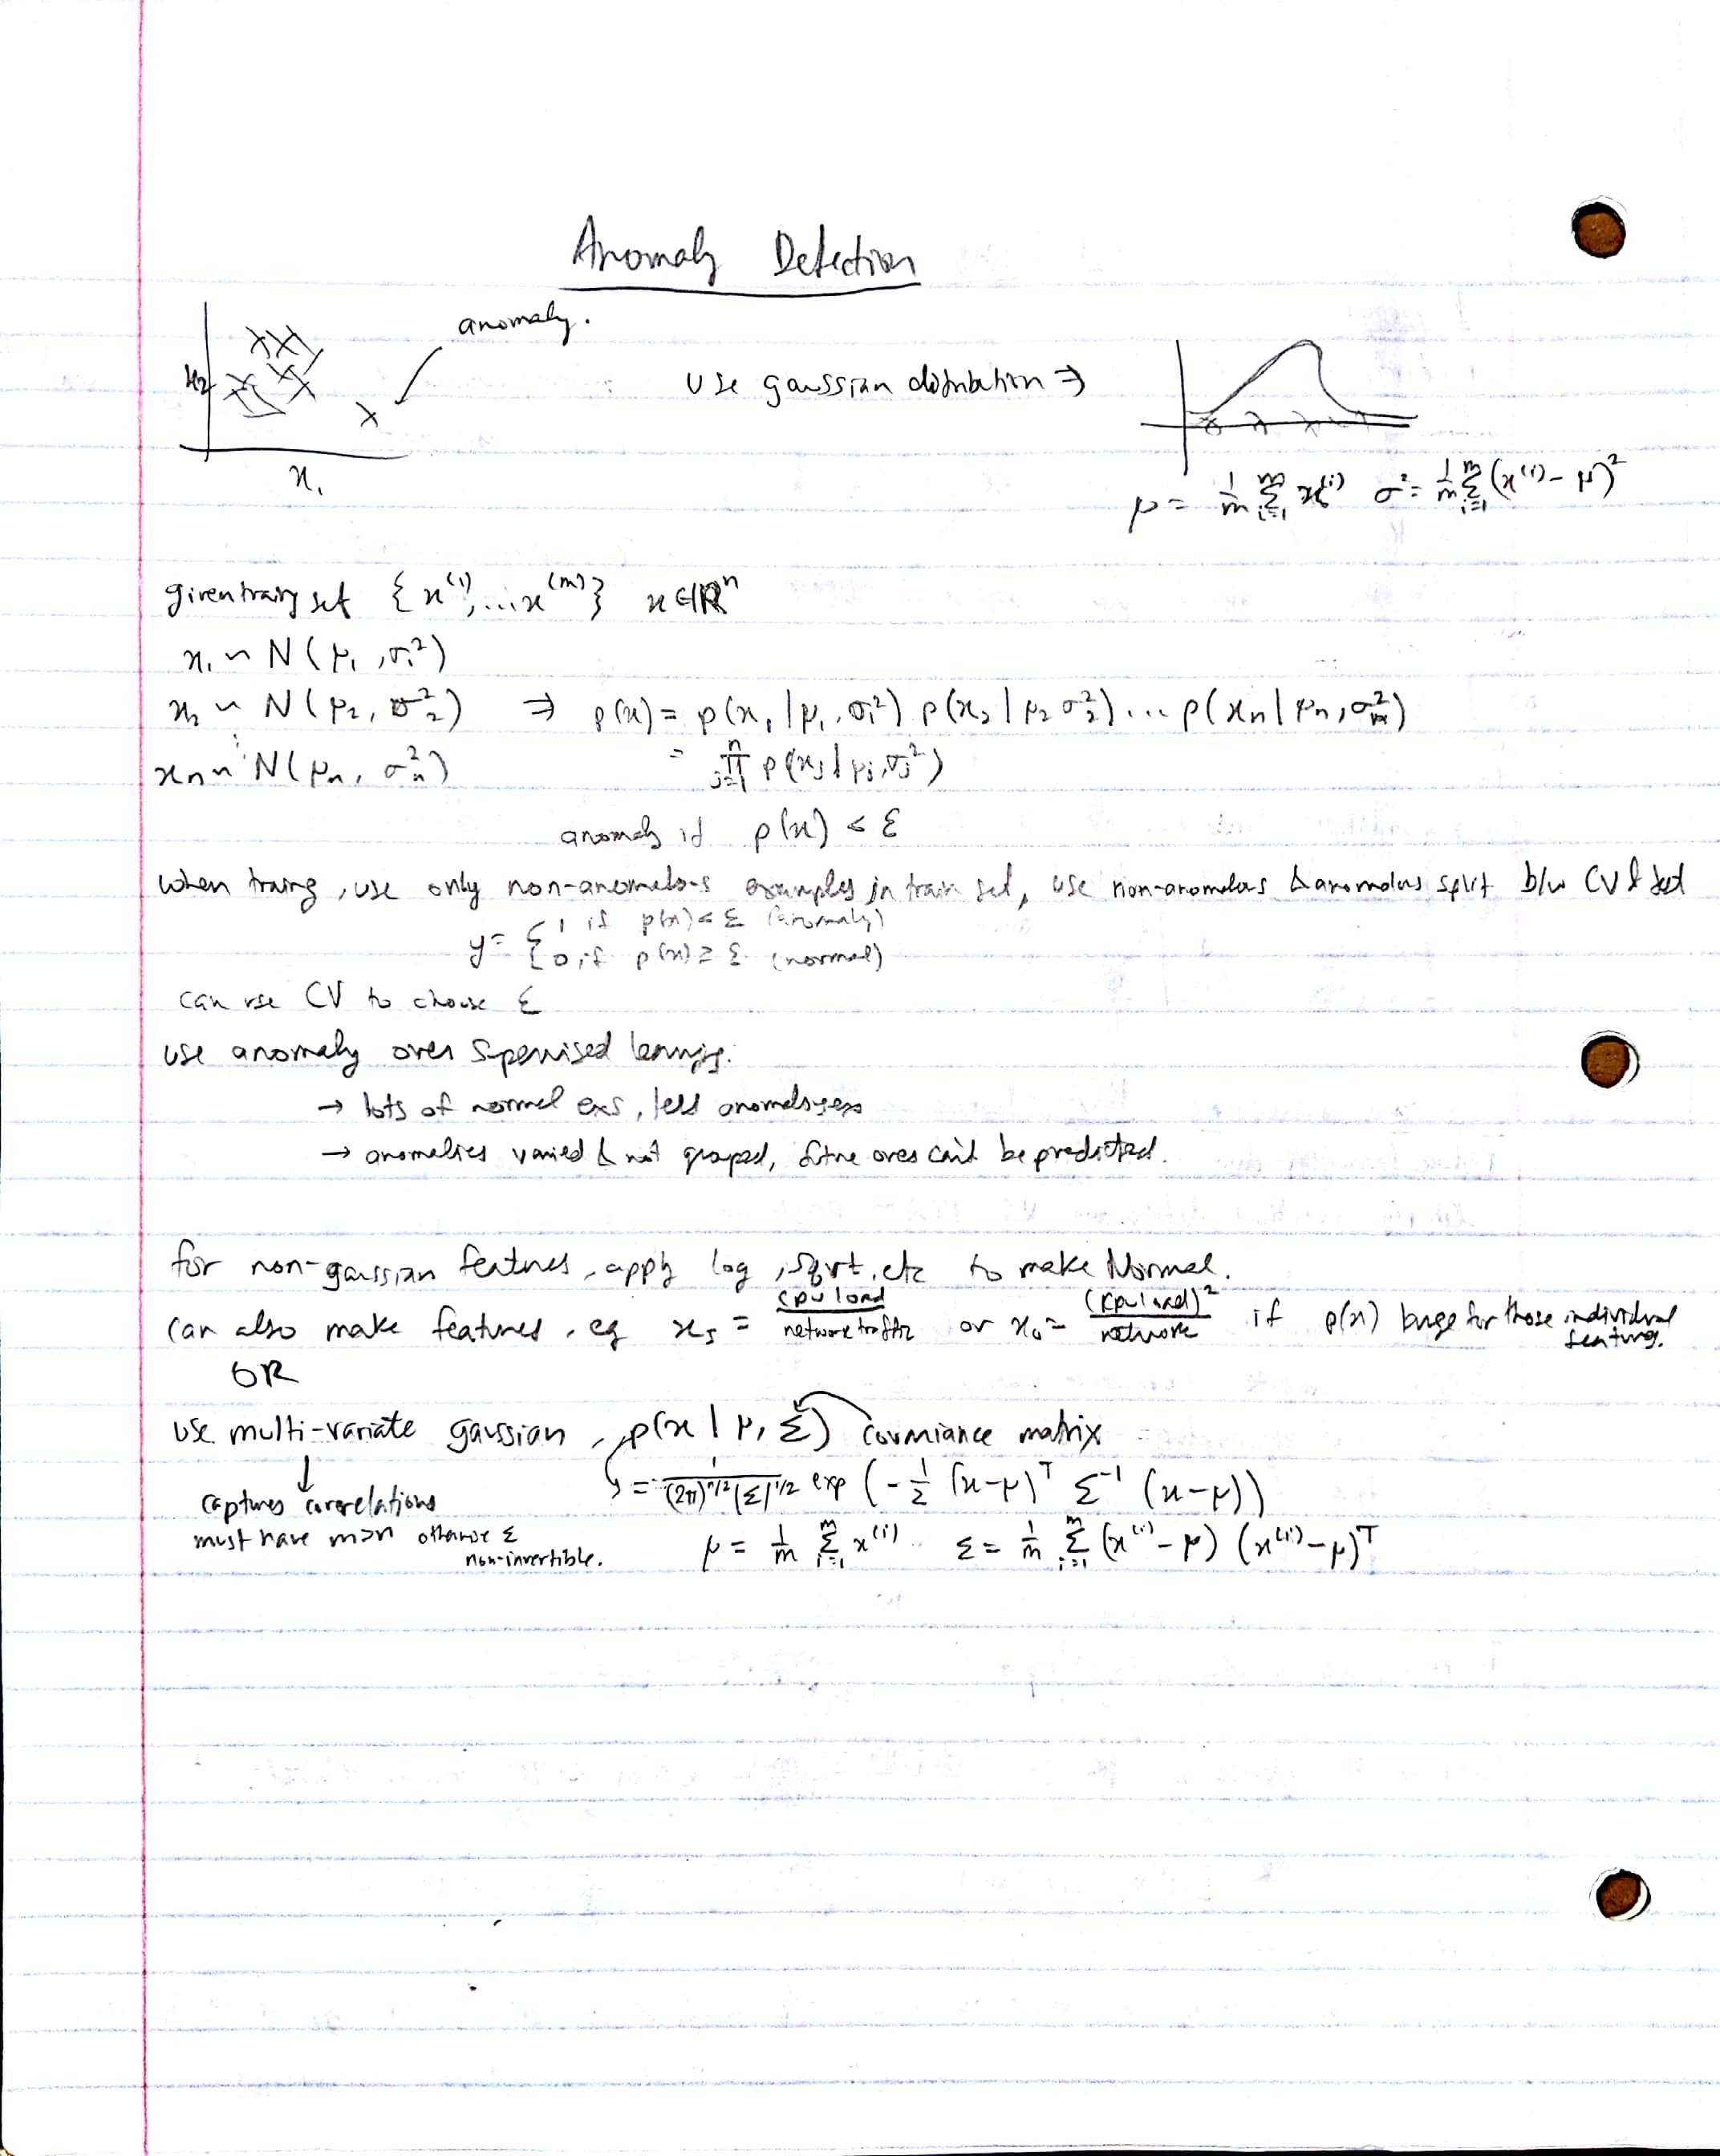 Anomaly Detection
anomaly.
x₂
x₁
use gaussian distribution ⇒
μ = 1/m Σᵢ₌₁ᵐ x⁽ⁱ⁾ σ² = 1/m Σᵢ₌₁ᵐ (x⁽ⁱ⁾ - μ)²
given traing set {x⁽¹⁾, ... x⁽ᵐ⁾} x ∈ ℝⁿ
x₁ ~ N(μ₁, σ₁²)
x₂ ~ N(μ₂, σ₂²) ⇒ p(x) = p(x₁|μ₁, σ₁²) p(x₂|μ₂ σ₂²) ... p(xₙ|μₙ, σₙ²)
⋮
xₙ ~ N(μₙ, σₙ²) = Πⱼ₌₁ⁿ p(xⱼ|μⱼ, σⱼ²)
anomaly if p(x) < ε
when traing, use only non-anomalous examples in train set, use non-anomalous & anomalous split b/w CV & test
y = { 1 if p(x) < ε (anomaly)
{ 0 if p(x) ≥ ε (normal)
can use CV to choose ε
use anomaly over supervised learning:
→ lots of normal exs, less anomalous exs
→ anomalies varied & not grouped, future ones can't be predicted.
for non-gaussian features, apply log, sqrt, etc to make Normal.
can also make features, eg x₅ = cpu load / network traffic or x₆ = (cpu load)² / network if p(x) huge for those individual features.
OR
use multi-variate gaussian, p(x | μ, Σ) covariance matrix
↓ captures correlations
= 1/((2π)ⁿᐟ² |Σ|¹ᐟ²) exp (-1/2 (x-μ)ᵀ Σ⁻¹ (x-μ))
must have m>n otherwise Σ
non-invertible.
μ = 1/m Σᵢ₌₁ᵐ x⁽ⁱ⁾ Σ = 1/m Σᵢ₌₁ᵐ (x⁽ⁱ⁾ - μ) (x⁽ⁱ⁾ - μ)ᵀ